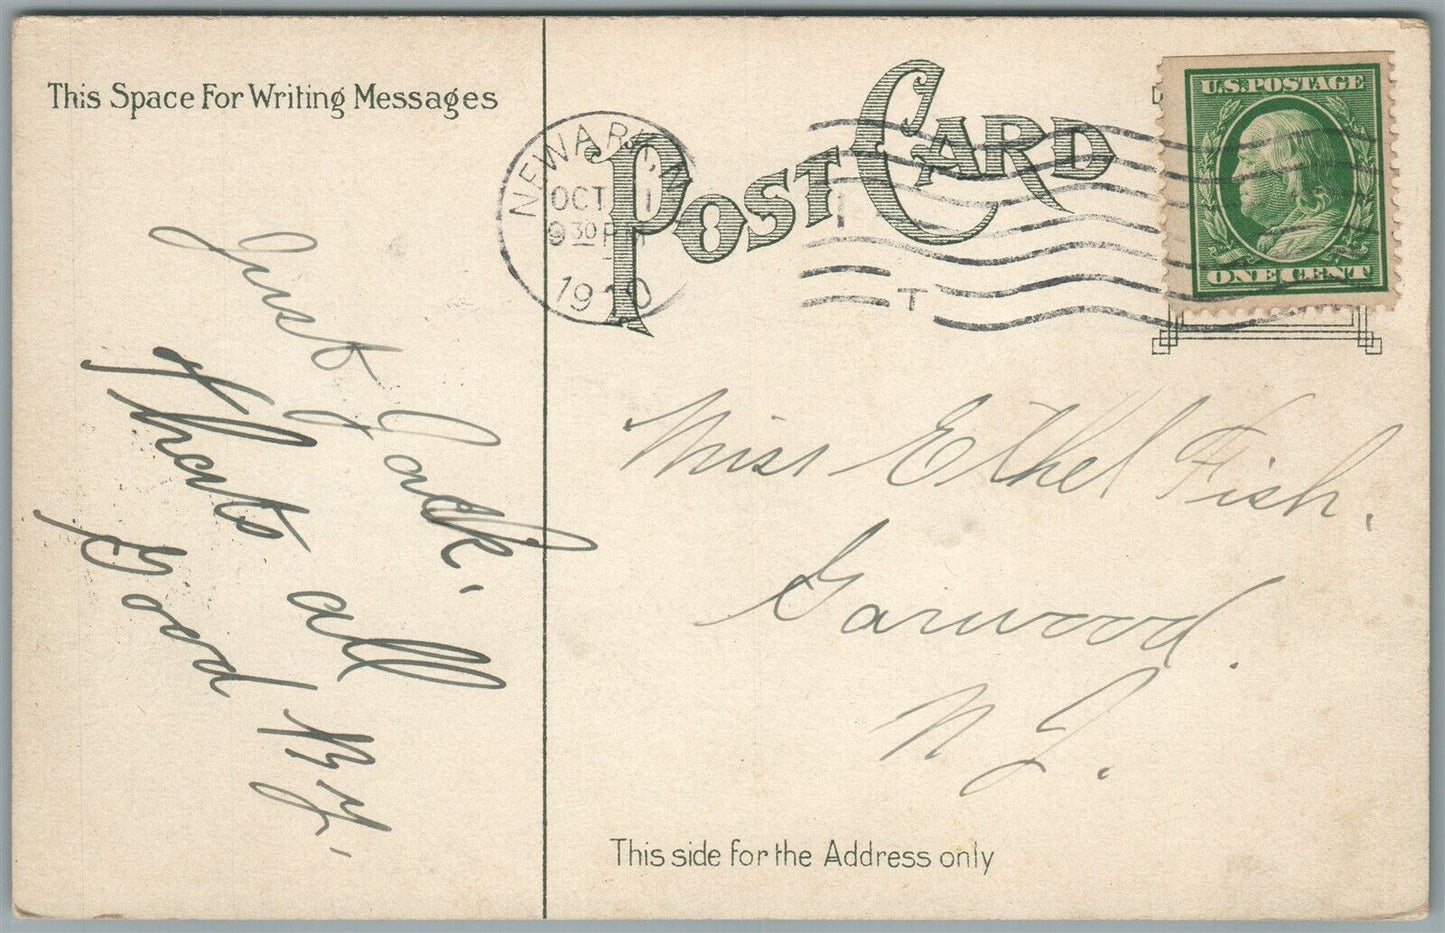 This Space For Writing Messages
POST CARD
U.S. POSTAGE
ONE CENT
NEWARK, N
OCT 1
9 30 PM
1910
T
Just Jack.
Thats all
Good By.
Miss Ethel Fish.
Garwood.
N. J.
This side for the Address only